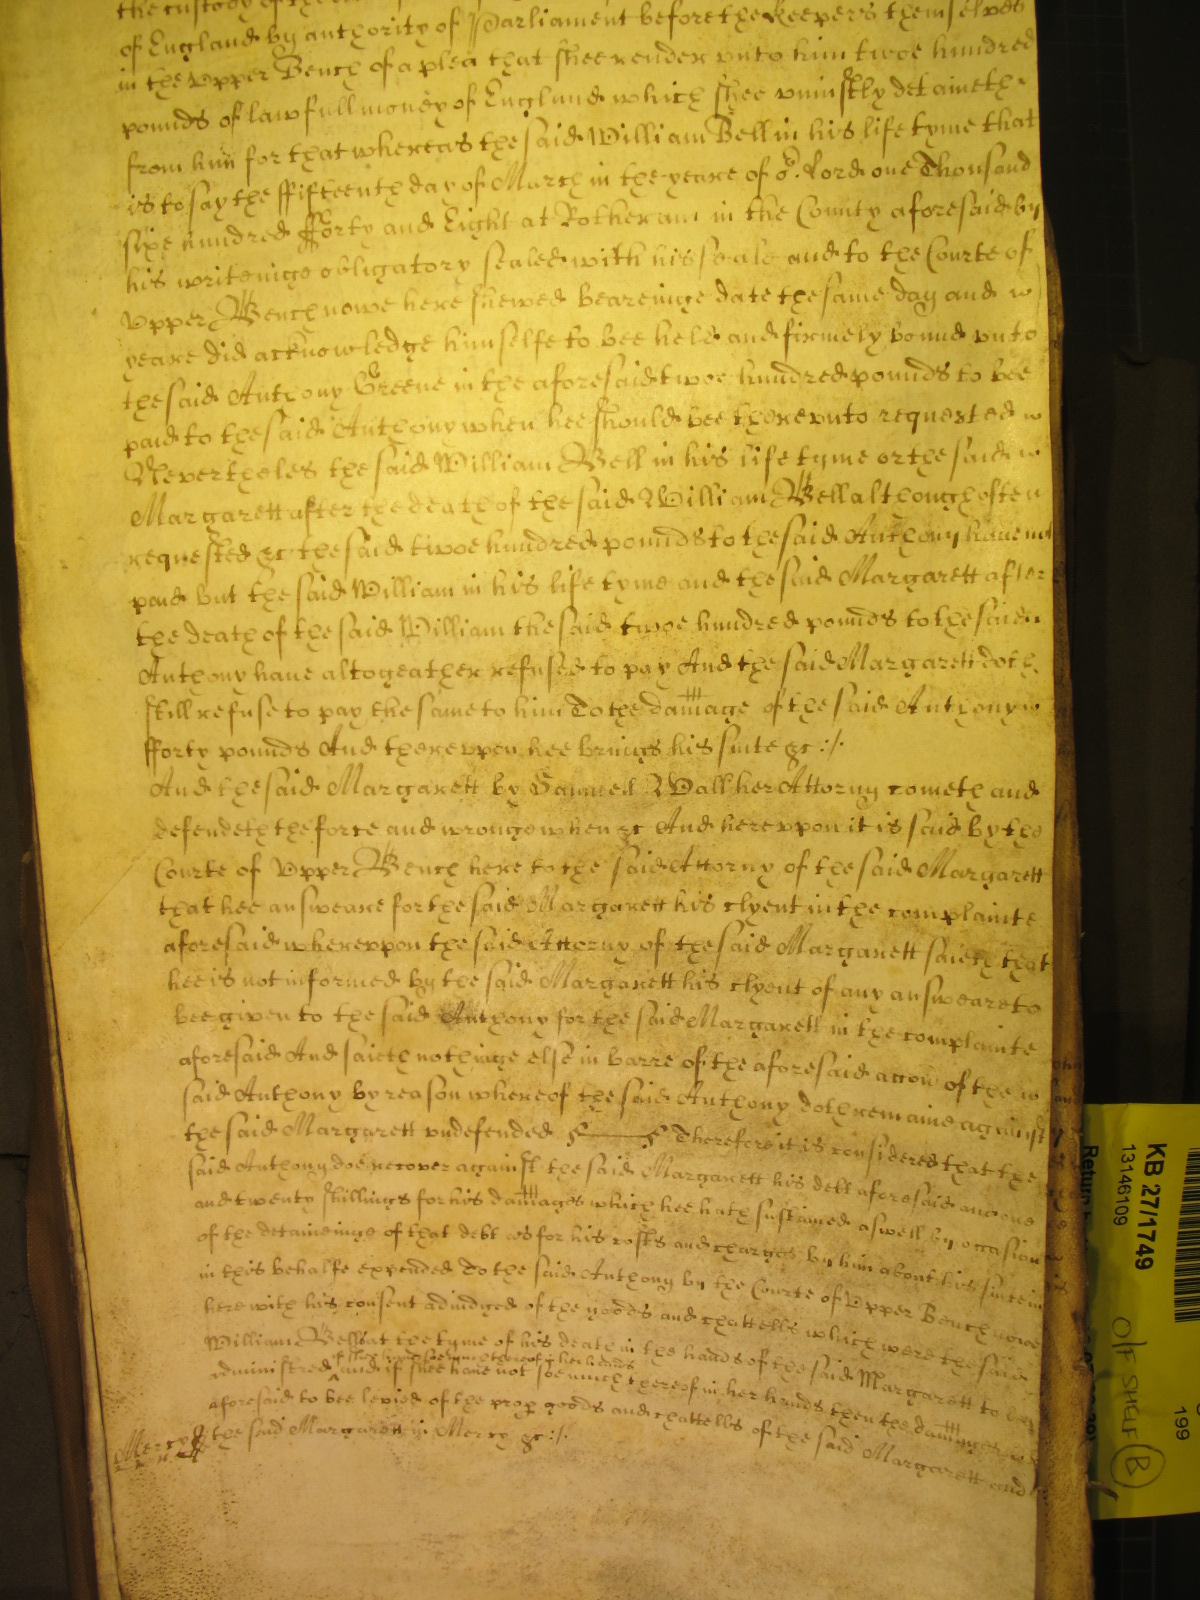 the custody of the
of England by authority of Parliament before the keepers themselves
in the Upper Bench of a plea that shee render unto him twoe hundred
pounds of lawfull money of England which shee uniustly detaineth
from him for that whereas the said William Bell in his life tyme that
is to say the ffifteenth day of March in the yeare of or. Lord one Thousand
sixe hundred fforty and Eight at Rotheram in the County aforesaid by
his writeinge obligatory sealed with his seale and to the Courte of
Upper Bench nowe here shewed beareinge date the same day and
yeare did acknowledge himselfe to bee held and firmely bound unto
the said Anthony Greene in the aforesaid twoe hundred pounds to bee
paid to the said Anthony when hee should bee thereunto requested
Nevertheles the said William Bell in his life tyme or the said
Margarett after the death of the said William Bell although often
requested &c the said twoe hundred pounds to the said Anthony have not
paid but the said William in his life tyme and the said Margarett after
the death of the said William the said twoe hundred pounds to the said
Anthony have altogeather refused to pay And the said Margarett doth
still refuse to pay the same to him To the damage of the said Anthony
fforty pounds And thereupon hee brings his suite &c :/.
And the said Margarett by Samuell Wall her Attorny cometh and
defendeth the force and wronge when &c And hereupon it is said by the
Courte of Upper Bench here to the said Attorny of the said Margarett
that hee answeare for the said Margarett his clyent in the complainte
aforesaid whereupon the said Attorny of the said Margarett saieth that
hee is not informed by the said Margarett his clyent of any answeare to
bee given to the said Anthony for the said Margarett in the complainte
aforesaid And saieth nothinge else in barre of the aforesaid accon of the
said Anthony by reason whereof the said Anthony doth remaine against
the said Margarett undefended Therefore it is considered that the
said Anthony doe recover against the said Margarett his debt aforesaid and one
and twenty shillings for his damages which hee hath sustained aswell by occasion
of the detaineinge of that debt as for his costs and charges by him about his suite in
in this behalfe expended To the said Anthony by the Courte of Upper Bench nowe
here with his consent adiudged of the goods and chattells which were the said
William Bell at the tyme of his death in the hands of the said Margarett to bee
if shee have soe much thereof in her hands
administred and if shee have not soe much thereof in her hands then the damages
aforesaid to bee levied of the prop goods and chattells of the said Margarett and
Mercy the said Margarett in Mercy &c :/.
KB 27/1749
13146109
O/F SHELF B
199